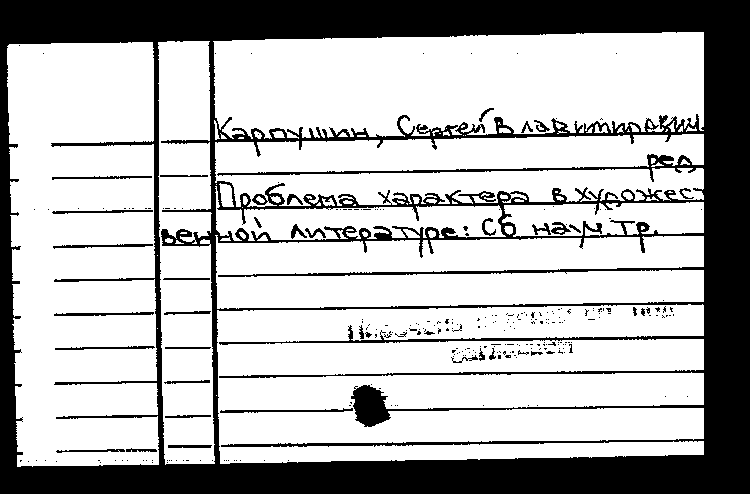 Карпушин, Сергей Владимирович.
ред
Проблема характера в художест
венной литературе: Сб науч. тр.
под
заглавием